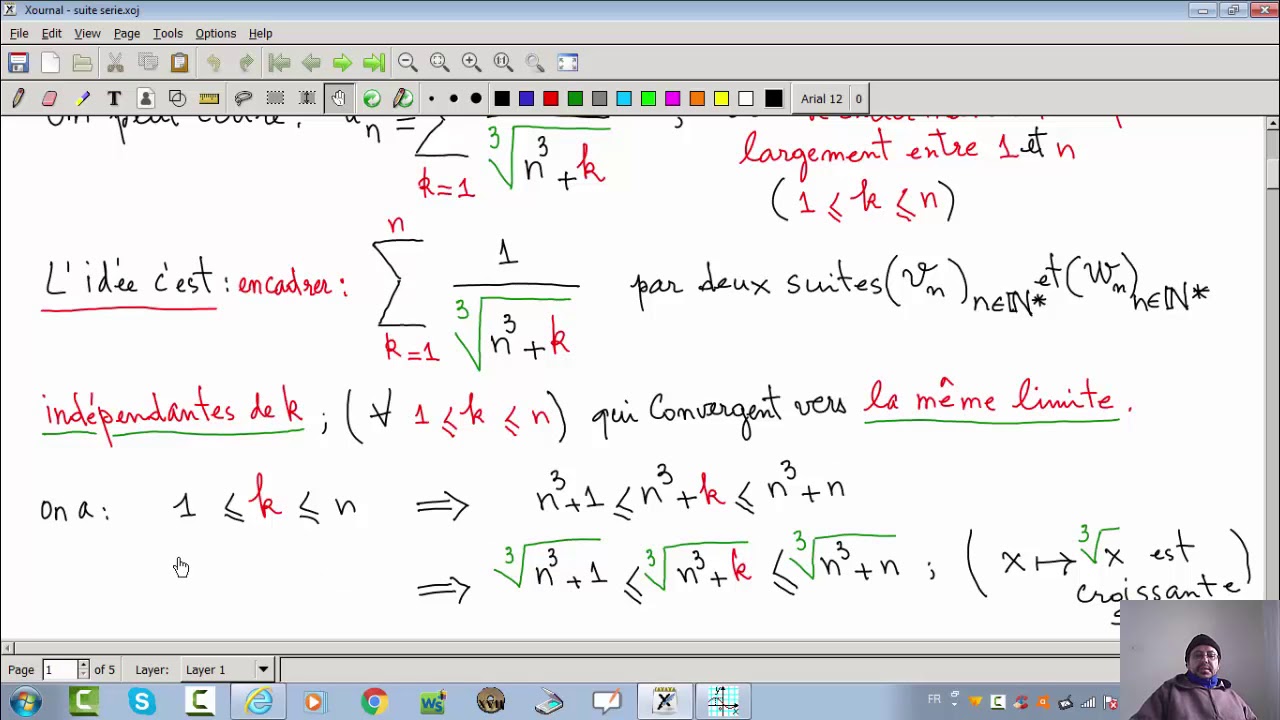 Xournal - suite serie.xoj
File Edit View Page Tools Options Help
Arial 12 0
largement entre 1 et n
n³+k
k=1
(1 ⩽ k ⩽ n)
L'idée c'est : encadrer : ∑ₖ₌₁ⁿ 1/∛(n³+k) par deux suites (vₙ)n∈ℕ* et (wₙ)n∈ℕ*
indépendantes de k ; (∀ 1 ⩽ k ⩽ n) qui convergent vers la même limite.
on a : 1 ⩽ k ⩽ n ⟹ n³+1 ⩽ n³+k ⩽ n³+n
⟹ ∛(n³+1) ⩽ ∛(n³+k) ⩽ ∛(n³+n) ; (x ↦ ∛x est
croissante
Page 1 of 5 Layer: Layer 1
FR